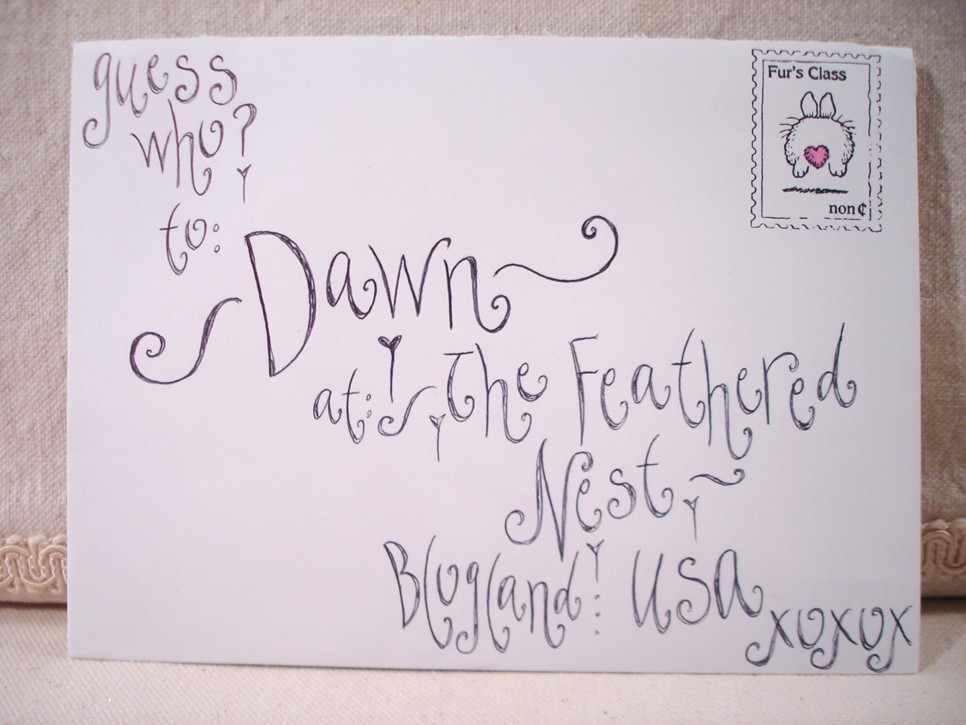 guess
who?
Fur's Class
non¢
to:
Dawn
at: The Feathered
Nest
Blogland: USA
xoxox